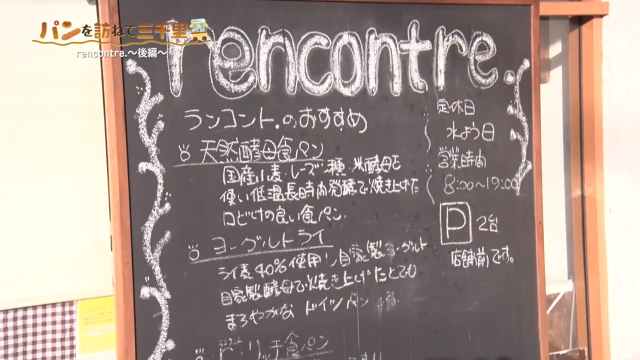 パンを訪ねて三千里
rencontre.～後編～
rencontre.
ランコントのおすすめ
天然酵母食パン
国産小麦・レーズン種、米酵母を
使い低温長時間発酵で焼き上げた
口どけの良い食パン。
ヨーグルトライ
ライ麦40%使用 自家製ヨーグルト
自家製酵母で焼き上げたとても
まろやかな ドイツパン
食パン
定休日
水よう日
営業時間
8:00～19:00
P 2台
店舗前です。